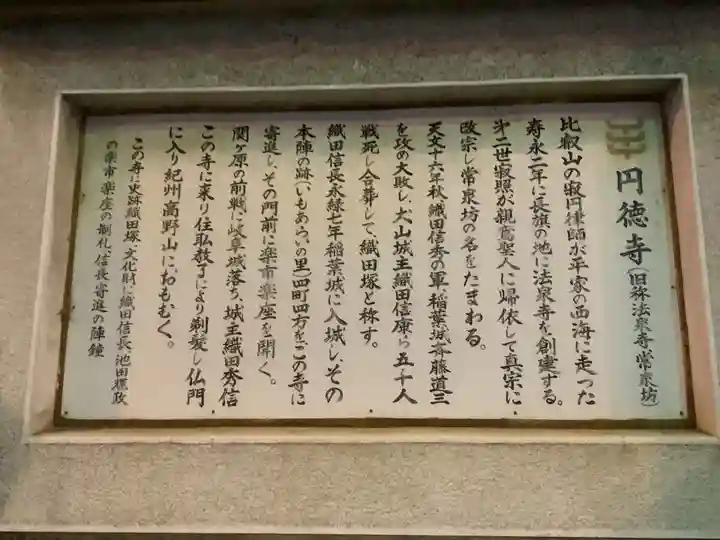 円徳寺(旧称法泉寺常泉坊)
比叡山の寂円律師が平家の西海に走った
寿永二年に長旗の地に法泉寺を創建する。
才二世寂照が親鸞聖人に帰依して真宗に
改宗し常泉坊の名をたまわる。
天文十六年秋、織田信秀の軍、稲葉城斉藤道三
を攻め大敗し、犬山城主織田信康ら五十人
戦死し合葬して、織田塚と称す。
織田信長永緑七年稲葉城に入城し、その
本陣の跡(いもあらいの里)四町四方をこの寺に
寄進し、その門前に楽市楽座を開く。
関ヶ原の前戦に岐阜城落ち、城主織田秀信
この寺に来り住職教了により剃髪し仏門
に入り紀州高野山に、おもむく。
この寺に史跡織田塚、文化財に織田信長、池田輝政
の楽市楽座の制札、信長寄進の陣鐘